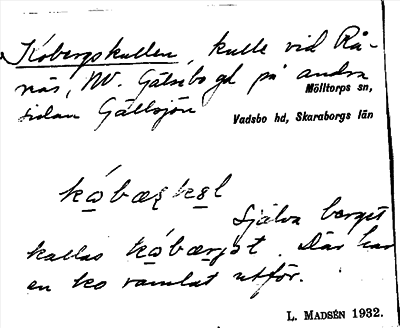 Kobergskullen, kulle vid Rå-
näs, NV. Gälsebo gd på andra
Mölltorps sn,
sidan Gällsjön
Vadsbo hd, Skaraborgs län
kóbæꞬkəl
Själva berget
kallas kóbærjət. Där har
en ko ramlat utför.
L. MADSÉN 1932.